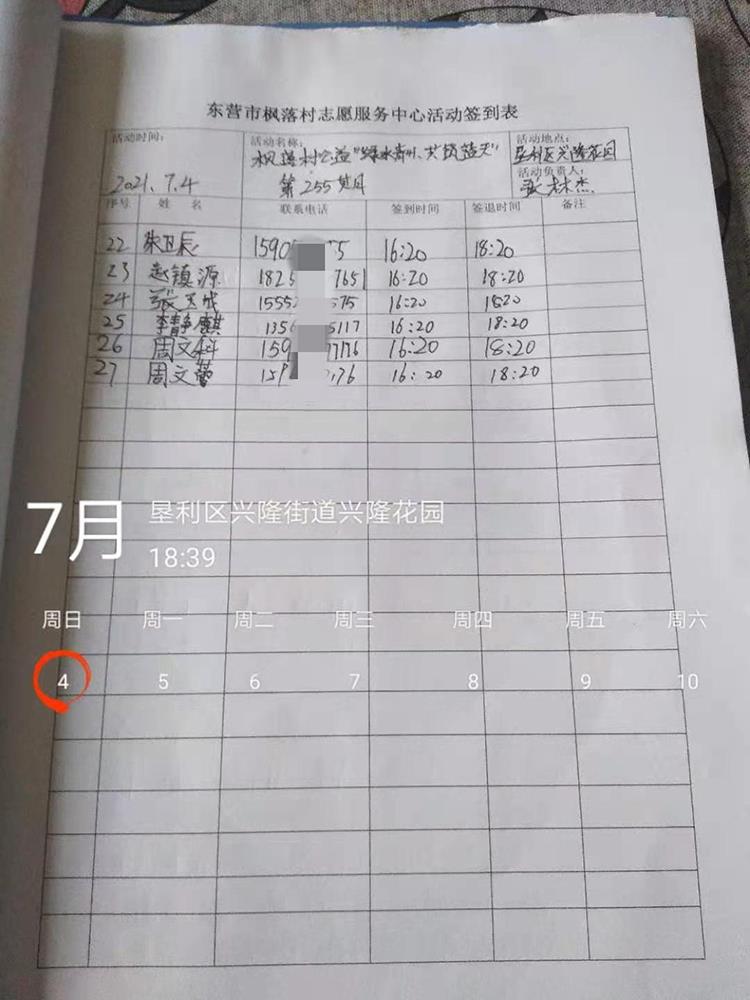 东营市枫落村志愿服务中心活动签到表
活动时间: 活动名称: 活动地点:
枫落村公益"绿水青山、共筑蓝天" 垦利区兴隆花园
2021.7.4 第255期 活动负责人:
林杰
序号 姓 名 联系电话 签到时间 签退时间 备注
22 朱卫辰 1590 75 16:20 18:20
23 赵镇源 1825 7651 16:20 18:20
24 张 1555 575 16:20 1820
25 李静麒 1356 5117 16:20 18:20
26 周文科 159 77176 16:20 18:20
27 周文蕾 159 176 16:20 18:20
7月
垦利区兴隆街道兴隆花园
18:39
周日 周一 周二 周三 周四 周五 周六
4 5 6 7 8 9 10